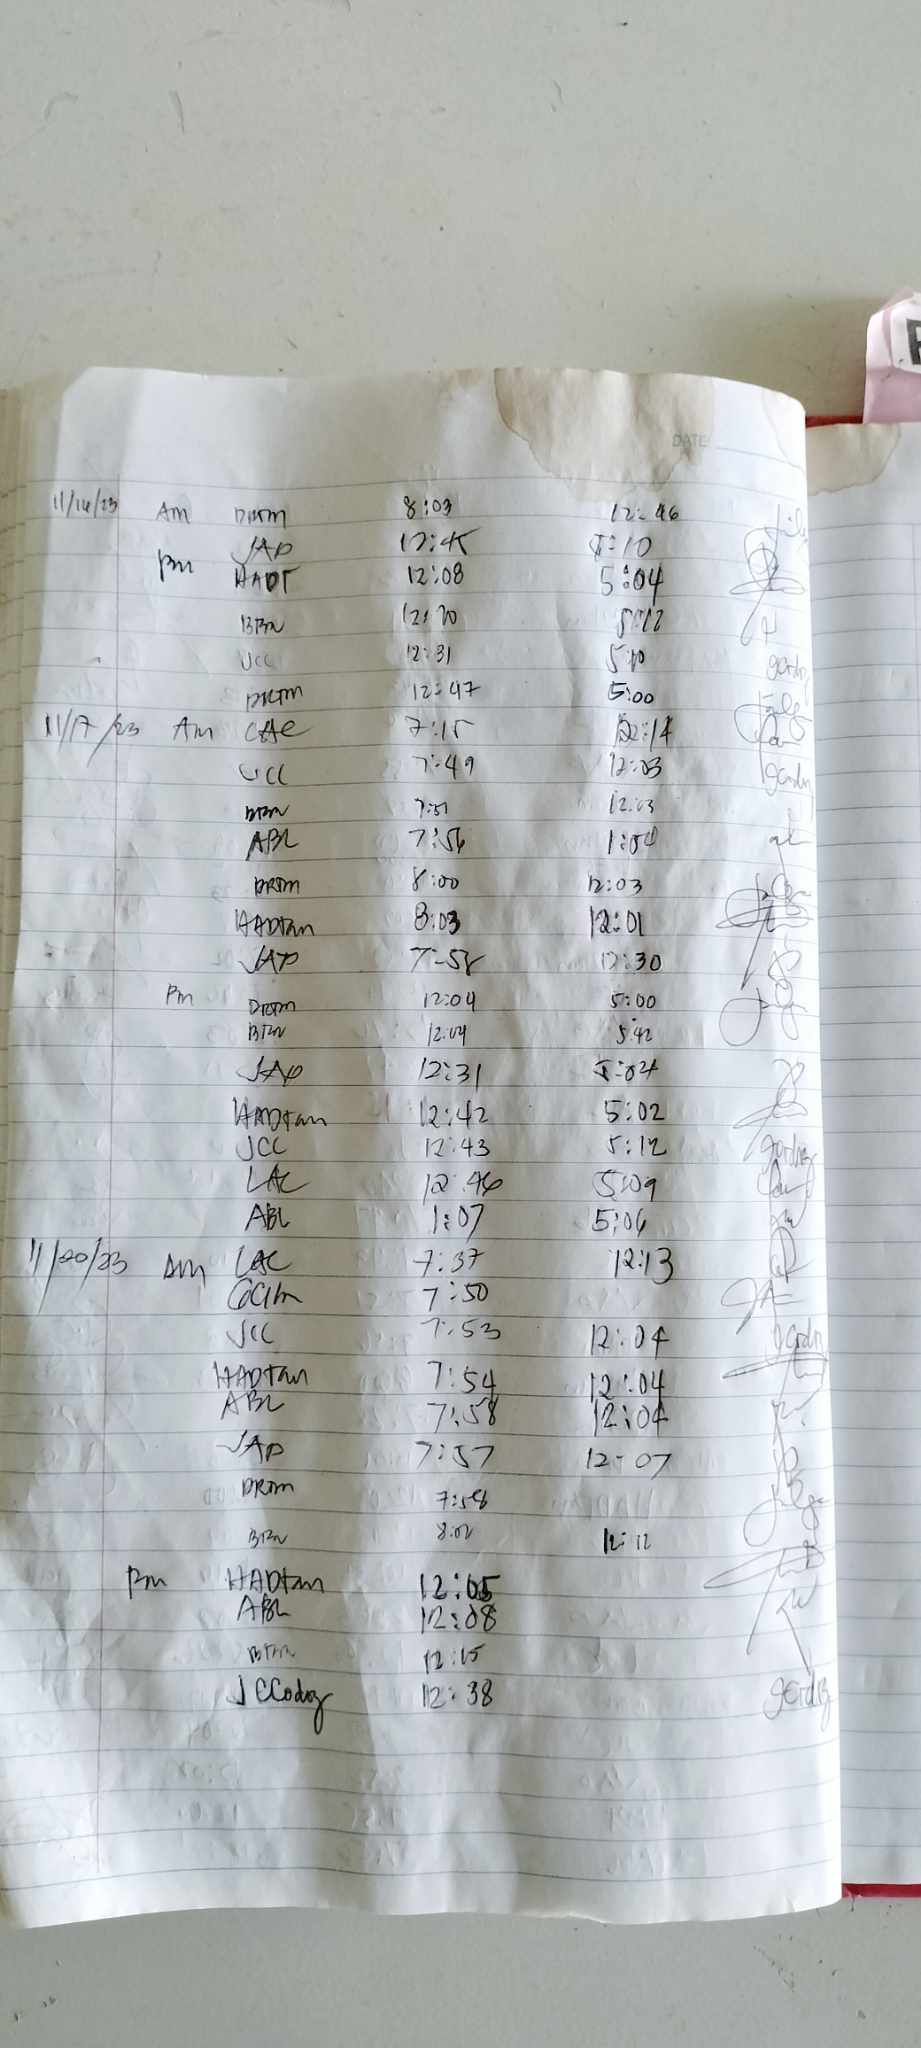 DATE
11/16/23 Am DRTM 8:03 12:46
JAP 12:45 5:10
Pm HADT 12:08 5:04
BBN 12:20 5:12
JCC 12:31 5:10
DRTM 12:47 5:00
11/17/23 Am LAC 7:15 12:14
JCC 7:49 12:03
BBN 7:51 12:03
ABL 7:56 1:04
DRTM 8:00 12:03
HADTan 8:03 12:01
JAP 7:58 12:30
Pm DRTM 12:04 5:00
BBN 12:04 5:42
JAP 12:31 5:04
HADTan 12:42 5:02
JCC 12:43 5:12
LAC 12:46 5:09
ABL 1:07 5:06
11/20/23 Am LAC 7:37 12:13
7:50
JCC 7:53 12:04
HADTan 7:54 12:04
ABL 7:58 12:04
JAP 7:57 12:07
DRTM 7:58
BBN 8:02 12:12
Pm HADTan 12:05
ABL 12:08
BBN 12:15
12:38